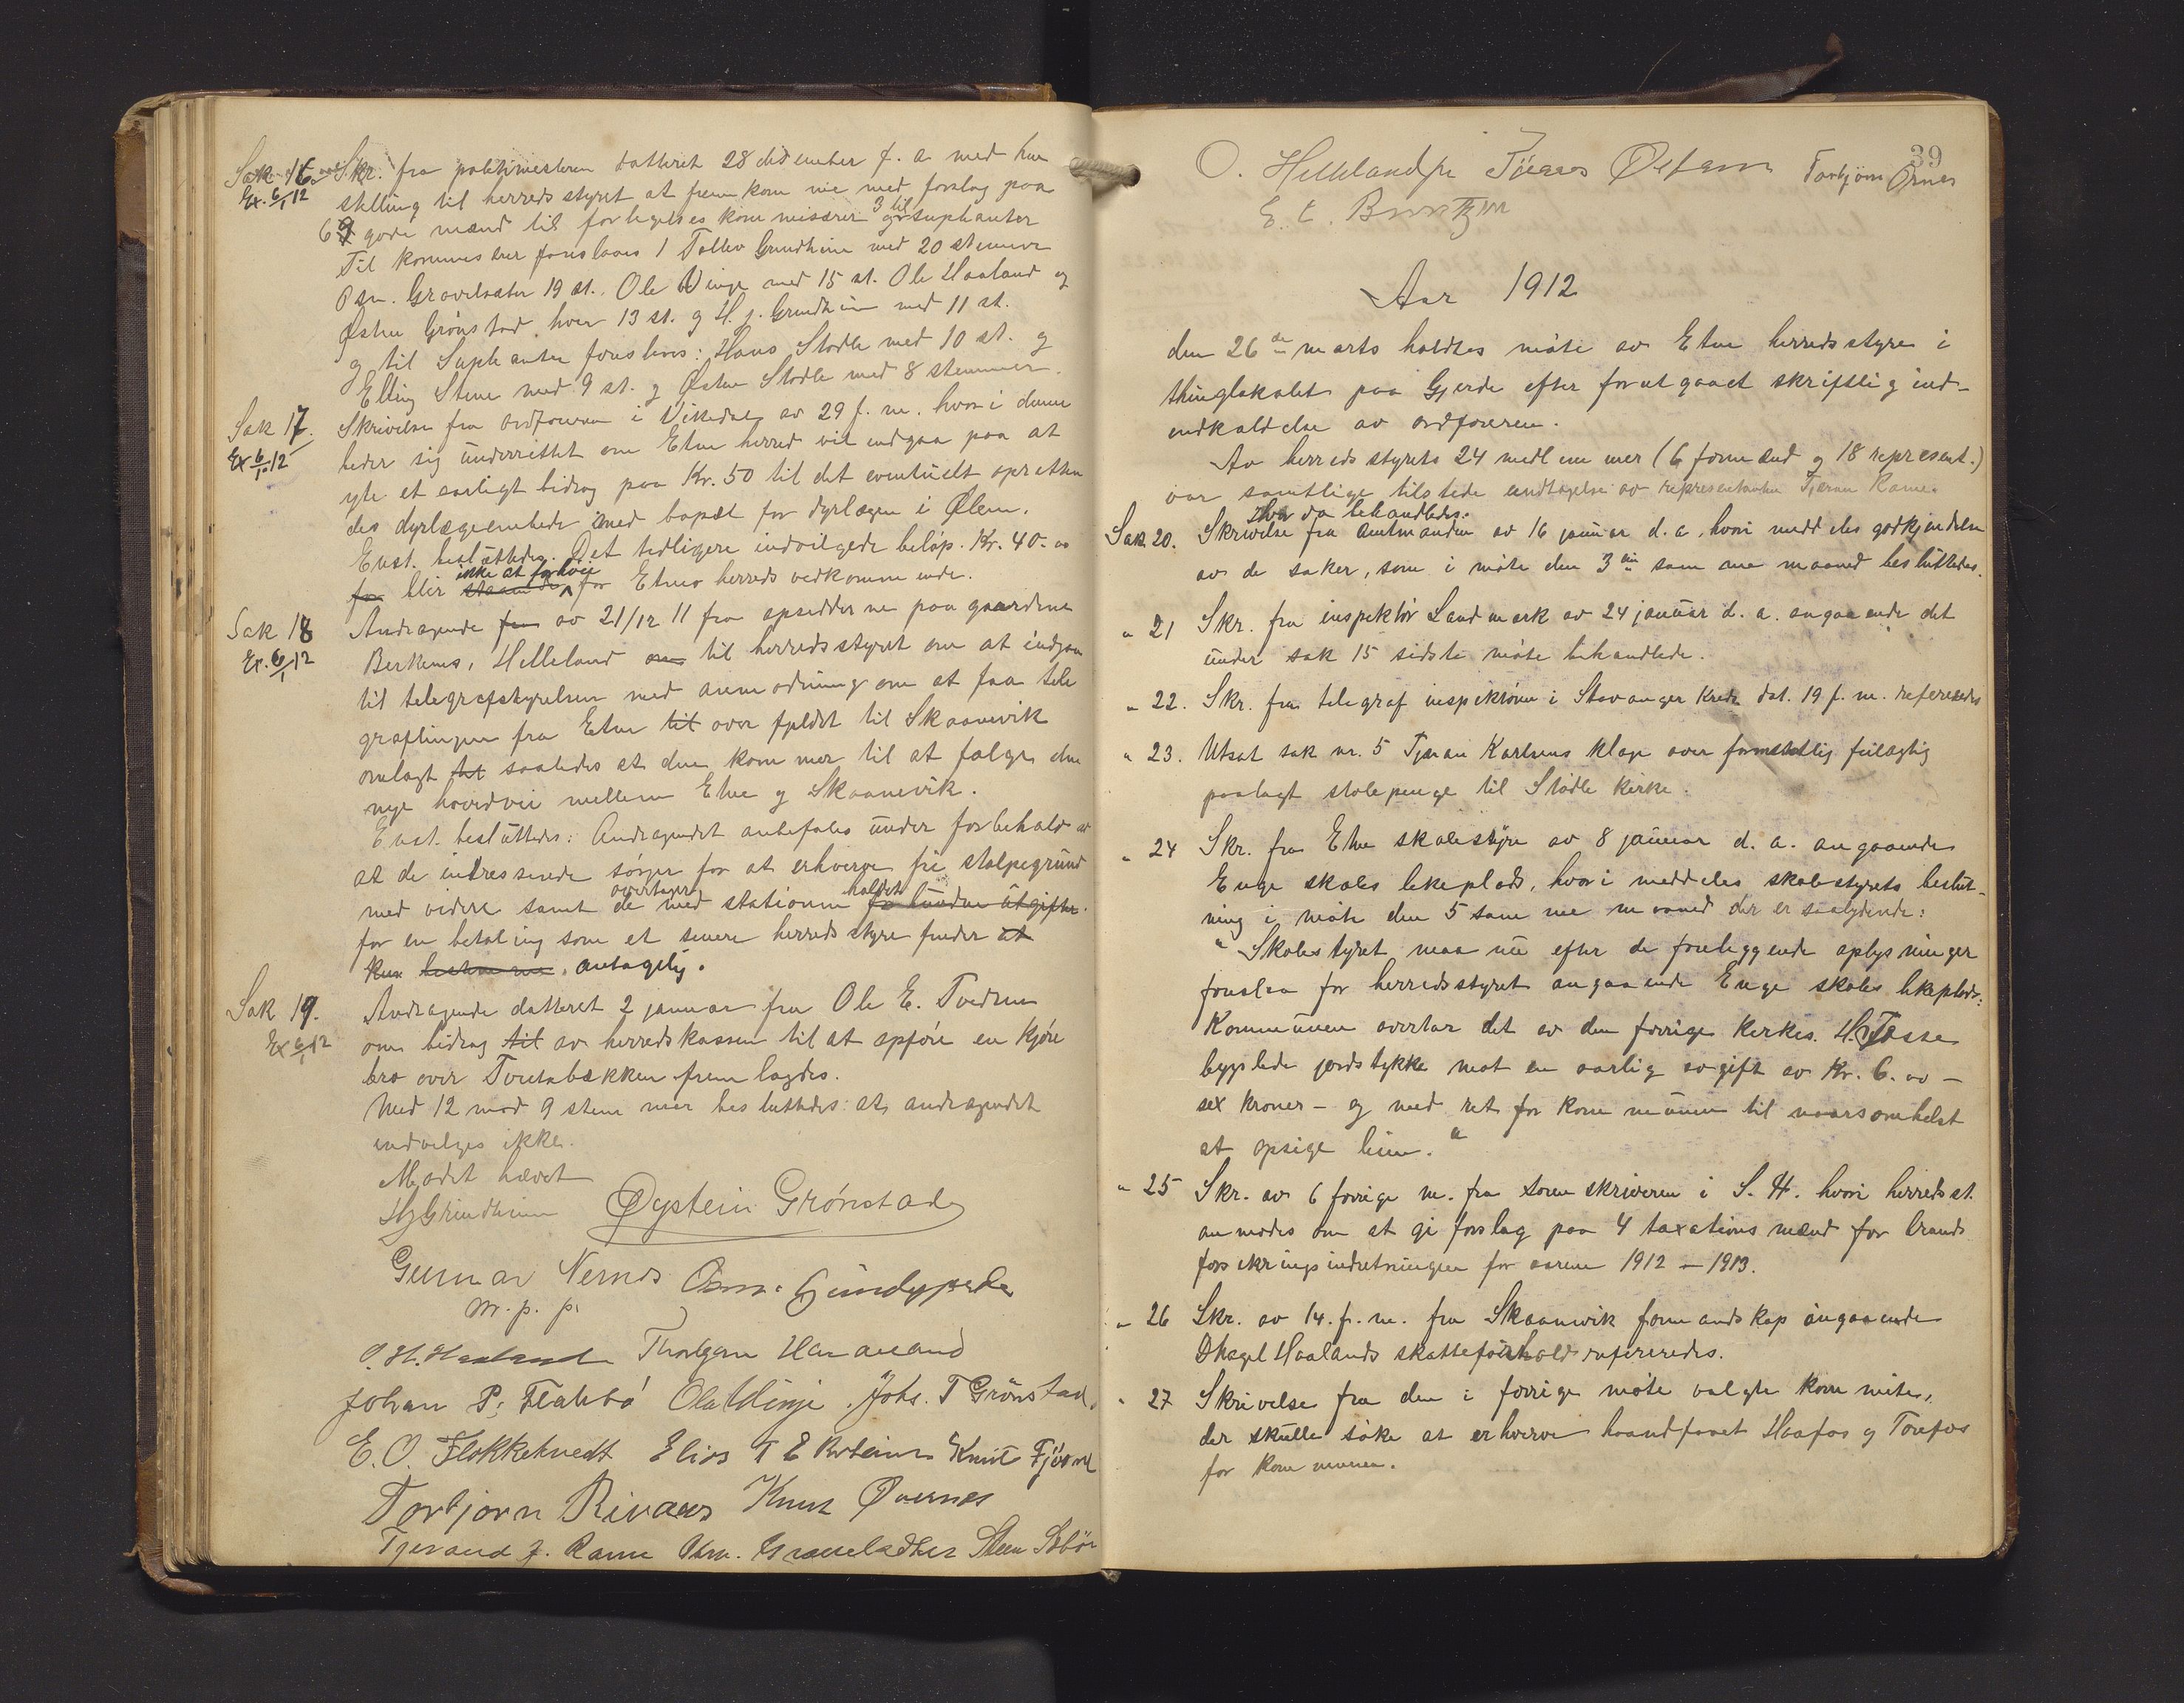 Sak 16. Skr. fra politimesteren datteret 28 desember f. a. med hen
Ex. 6/1 12
stilling til herredsstyret at fremkomme med forslag paa
6 gode mænd til forligelseskommisærer og 3 til suplianter
Til kommisærer foreslaaes 1 Tollev Grindheim med 20 stemmer
Osm. Gravelsæter 19 st., Ole Vinje med 15 st. Ole Haaland og
Østen Grönstad hver 13 st. og H. J. Grindheim med 11 st.
og til Suplianter foreslaaes: Hans Stødle med 10 st. og
Elling Steine med 9 st. og Østen Stødle med 8 stemmer.
Sak 17.
Ex 6/1 12
Skrivelse fra ordføreren i Vikedal av 29 f. m. hvori denne
beder sig underrettet om Etne herred vil indgaa paa at
yte et aarligt bidrag paa Kr. 50 til det eventuelt opretten
des dyrlægeembede med bopæl for dyrlægen i Ølen.
Enst. besluttedes: Det tidligere indvilgede beløp Kr. 40.00
for blir staaende ikke at forhöie for Etnes herreds vedkommende.
Sak 18
Ex. 6/1 12
Andragende fra av 21/12 11 fra opsidderne paa gaardene
Berkenes, Helleland om til herredsstyret om at indgaa
til telegrafstyrelsen med anmodning om at faa tele
graflinjen fra Etne til over fjeldet til Skaanevik
omlagt til saaledes at den kommer til at følge den
nye hovedvei mellem Etne og Skaanevik.
Enst. besluttedes: Andragendet anbefales under forbehold av
at de intresserende sörger for at erhverve fri stolpegrund
med videre samt overtager de med stationen holdet forbundne utgifter.
for en betaling som et senere herredsstyre finder at
kun bestemme. antagelig.
Sak 19.
Ex 6/1 12
Andragende datteret 2 januar fra Ole E. Tvedten
om bidrag til av herredskassen til at opføre en kjöre
bro over Tveitabækken fremlagdes.
Med 12 mod 9 stemmer besluttedes at andragendet
indvilges ikke.
Mødet hævet
HJGrindheim Øystein Grønstad
Gunnar Nernes Osm.
m. p. p.
O. H. Haaland
Johan P. Flatebö Ola Vinje Johs. T Grönstad.
E. O. Flokketvedt Elias T E Knut Fjösne
Torbjørn Rivenes Knut Øvernes
Tjerand J. Rame Osm. Gravelsæther Steen Sæbö
39
O. Helleland Torbjørn Ørnes
Aar 1912
den 26de marts holdtes möte av Etne herredsstyre i
thinglokalet paa Gjerde efter forutgaaet skriftlig ind-
endkaldelse av ordföreren.
Av herredsstyrets 24 medlemmer (6 formænd og 18 represent.)
var samtlige tilstede undtagelse av representanten Tjeran Rame.
Hvor da behandledes:
Sak 20. Skrivelse fra amtmanden av 16 januar d. a. hvori meddeles godkjendelse
av de saker, som i möte den 3die samme maaned besluttedes.
" 21 Skr. fra inspektör Landmark av 24 januar d. a. angaaende det
under sak 15 sidste möte behandlede.
" 22. Skr. fra telegrafinspektören i Stavanger kreds dat. 19 f. m. refereredes
" 23. Utsat sak nr. 5 Tjeran Karlsens klage over formentlig feilagtig
paalagt stolepenge til Stödle kirke.
" 24 Skr. fra Etne skolestyre av 8 januar d. a. angaaende
Enge skoles lekeplads, hvori meddeles skolestyrets beslut-
ning i möte den 5 samme maaned der er saalydende:
" Skolestyret maa nu efter de foreliggende oplysninger
foreslaa for herredsstyret angaaende Enge skoles lekeplads:
Kommunen overtar det av den forrige kirkes.
bygslede jordstykke mot en aarlig avgift av Kr. 6.00 —
sex kroner — og med ret for kommunen til naarsomhelst
at opsige linn. "
" 25 Skr. av 6 forrige m. fra sorenskriveren i S. H. hvori herredsst.
anmodes om at gi forslag paa 4 taxationsmænd for brand
forsikringsindretningen for aarene 1912 — 1913.
" 26 Skr. av 14. f. m. fra Skaanevik formandskap angaaende
Haalands skatteforhold refereredes.
" 27 Skrivelse fra den i forrige möte valgte komite,
der skulle söke at erhverve haandfaaet Haafos og Torefos
for kommunen.